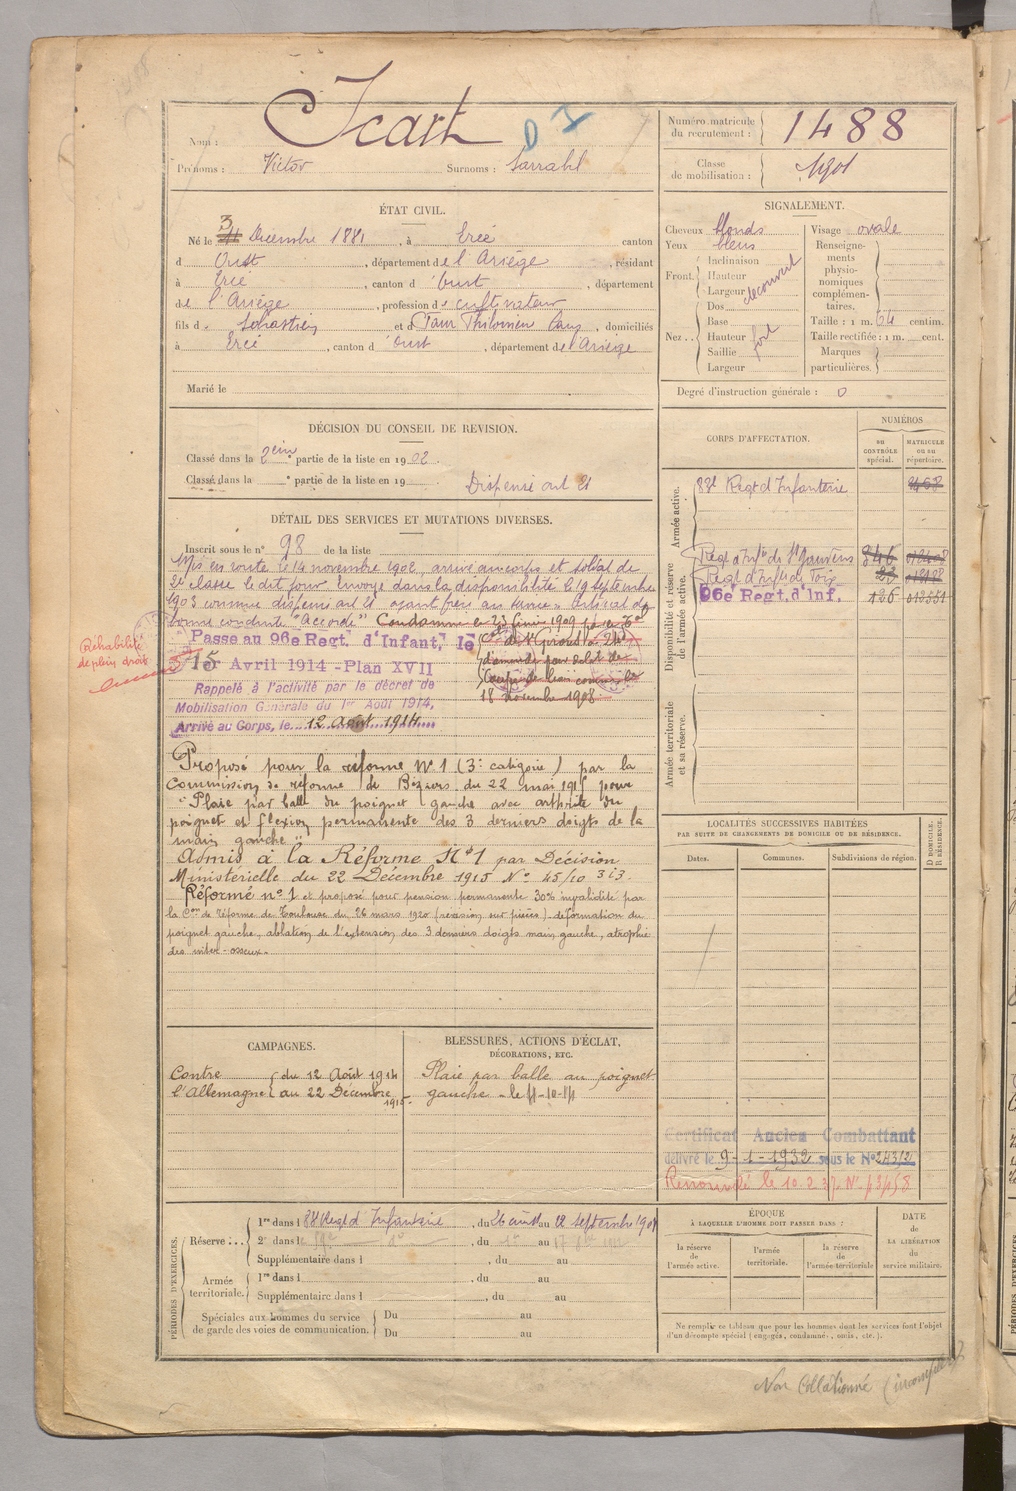 Nom : Icart
D
Prénoms : Victor Surnoms : Sarrahl
Numéro matricule du recrutement : 1488
Classe de mobilisation : 1901
ÉTAT CIVIL.
Né le 3 Décembre 1881, à Ercé canton
d Oust, département de l'Ariège, résidant
à Ercé, canton d'Oust, département
de l'Ariège, profession de cultivateur
fils de Sébastien et de , domiciliés
à Ercé, canton d'Oust, département de l'Ariège
Marié le
SIGNALEMENT.
Cheveux blonds
Yeux bleus
Front. Inclinaison
Hauteur
Largeur découvert
Nez.. Dos
Base
Hauteur fort
Saillie
Largeur
Visage ovale
Renseignements physionomiques complémentaires.
Taille : 1 m. 64 centim.
Taille rectifiée : 1 m. cent.
Marques particulières.
Degré d'instruction générale : 0
DÉCISION DU CONSEIL DE REVISION.
Classé dans la 2eim partie de la liste en 1902.
Classé dans la ° partie de la liste en 19
Dispensé art 21
DÉTAIL DES SERVICES ET MUTATIONS DIVERSES.
Inscrit sous le n° 98 de la liste
Mis en route le 14 novembre 1902, arrivé au corps et soldat de
2e classe le dit jour. Envoyé dans la disponibilité le 19 septembre
1903 comme dispensé art 21 ayant frère au service. Certificat de
bonne conduite "Accordé" Condamné le 23 février 1909 par le
18 novembre 1908
Réhabilité
de plein droit
Passe au 96e Regt. d'Infant, le
15 Avril 1914 - Plan XVII
Rappelé à l'activité par le décret de
Mobilisation Générale du 1er Août 1914,
Arrivé au Corps, le 12 Août 1914
Proposé pour la réforme N°1 (3e catégorie) par la
Commission de réforme de Béziers du 22 mai 1915 pour
"Plaie par balle du poignet gauche avec arthrite du
poignet et flexion permanente des 3 derniers doigts de la
main gauche"
Admis à la Réforme N°1 par Décision
Ministérielle du 22 Décembre 1915 N° 45/10 313
Réformé n° 1 et proposé pour pension permanente 30% invalidité par
la Con de réforme de Toulouse du 26 mars 1920 (révision sur pièces) déformation du
poignet gauche, ablation de l'extension des 3 derniers doigts main gauche, atrophie
des inter-osseux.
CORPS D'AFFECTATION.
NUMÉROS
au contrôle spécial.
matricule ou au répertoire.
Armée active.
Disponibilité et réserve de l'armée active.
Armée territoriale et sa réserve.
Regt d'Infanterie
Regt d'Inf ie de St Gaudens 346
Regt d'Inf ie de Foix
96e Regt. d'Inf. 126
LOCALITÉS SUCCESSIVES HABITÉES
PAR SUITE DE CHANGEMENTS DE DOMICILE OU DE RÉSIDENCE.
Dates. Communes. Subdivisions de région.
D. DOMICILE. R. RÉSIDENCE.
CAMPAGNES.
Contre l'Allemagne { du 12 Août 1914
au 22 Décembre 1915.
BLESSURES, ACTIONS D'ÉCLAT,
DÉCORATIONS, ETC.
Plaie par balle au poignet
gauche - le 11-10-14
Certificat Ancien Combattant
délivré le 9-1-1932 sous le N°
Renouvelé le 10.2.37. N°
PÉRIODES D'EXERCICES.
Réserve : 1re dans l 88 Regt d'Infanterie, du 26 août au 22 septembre
2e dans l , du au
Supplémentaire dans l , du au
Armée territoriale. 1re dans l , du au
Supplémentaire dans l , du au
Spéciales aux hommes du service
de garde des voies de communication. Du au
Du au
ÉPOQUE
À LAQUELLE L'HOMME DOIT PASSER DANS :
la réserve de l'armée active.
l'armée territoriale.
la réserve de l'armée territoriale
DATE
de
LA LIBÉRATION
du
service militaire.
Ne remplir ce tableau que pour les hommes dont les services font l'objet
d'un décompte spécial (engagés, condamnés, omis, etc.).
Non Collationné